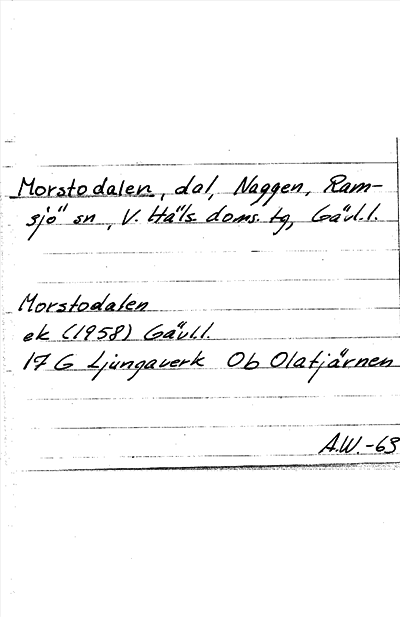 Morstodalen, dal, Naggen, Ram-
sjö sn, V. Häls doms. tg, Gävl.l.
Morstodalen
ek (1958) Gävl.l.
17 G Ljungaverk Ob Olatjärnen
A.W.-63